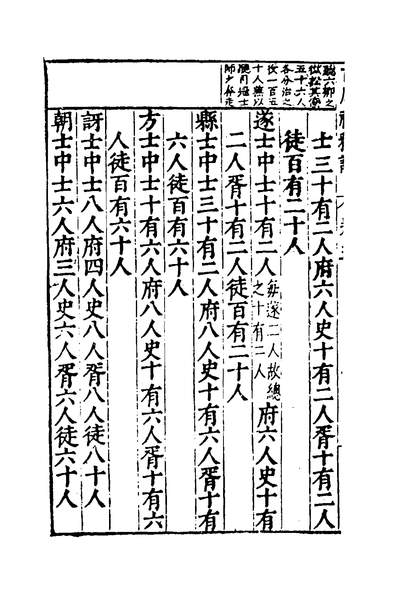 士三十有二人府六人史十有二人胥十有二人
徒百有二十人
遂士中士十有二人每遂二人故總之十有二人府六人史十有
二人胥十有二人徒百有二十人
縣士中士三十有二人府八人史十有六人胥十有
六人徒百有六十人
方士中士十有六人府八人史十有六人胥十有六
人徒百有六十人
訝士中士八人府四人史八人胥八人徒八十人
朝士中士六人府三人史六人胥六人徒六十人
聽六鄉之
獄訟其
五十六人
各分治之
一百五
十人無以
士
師之